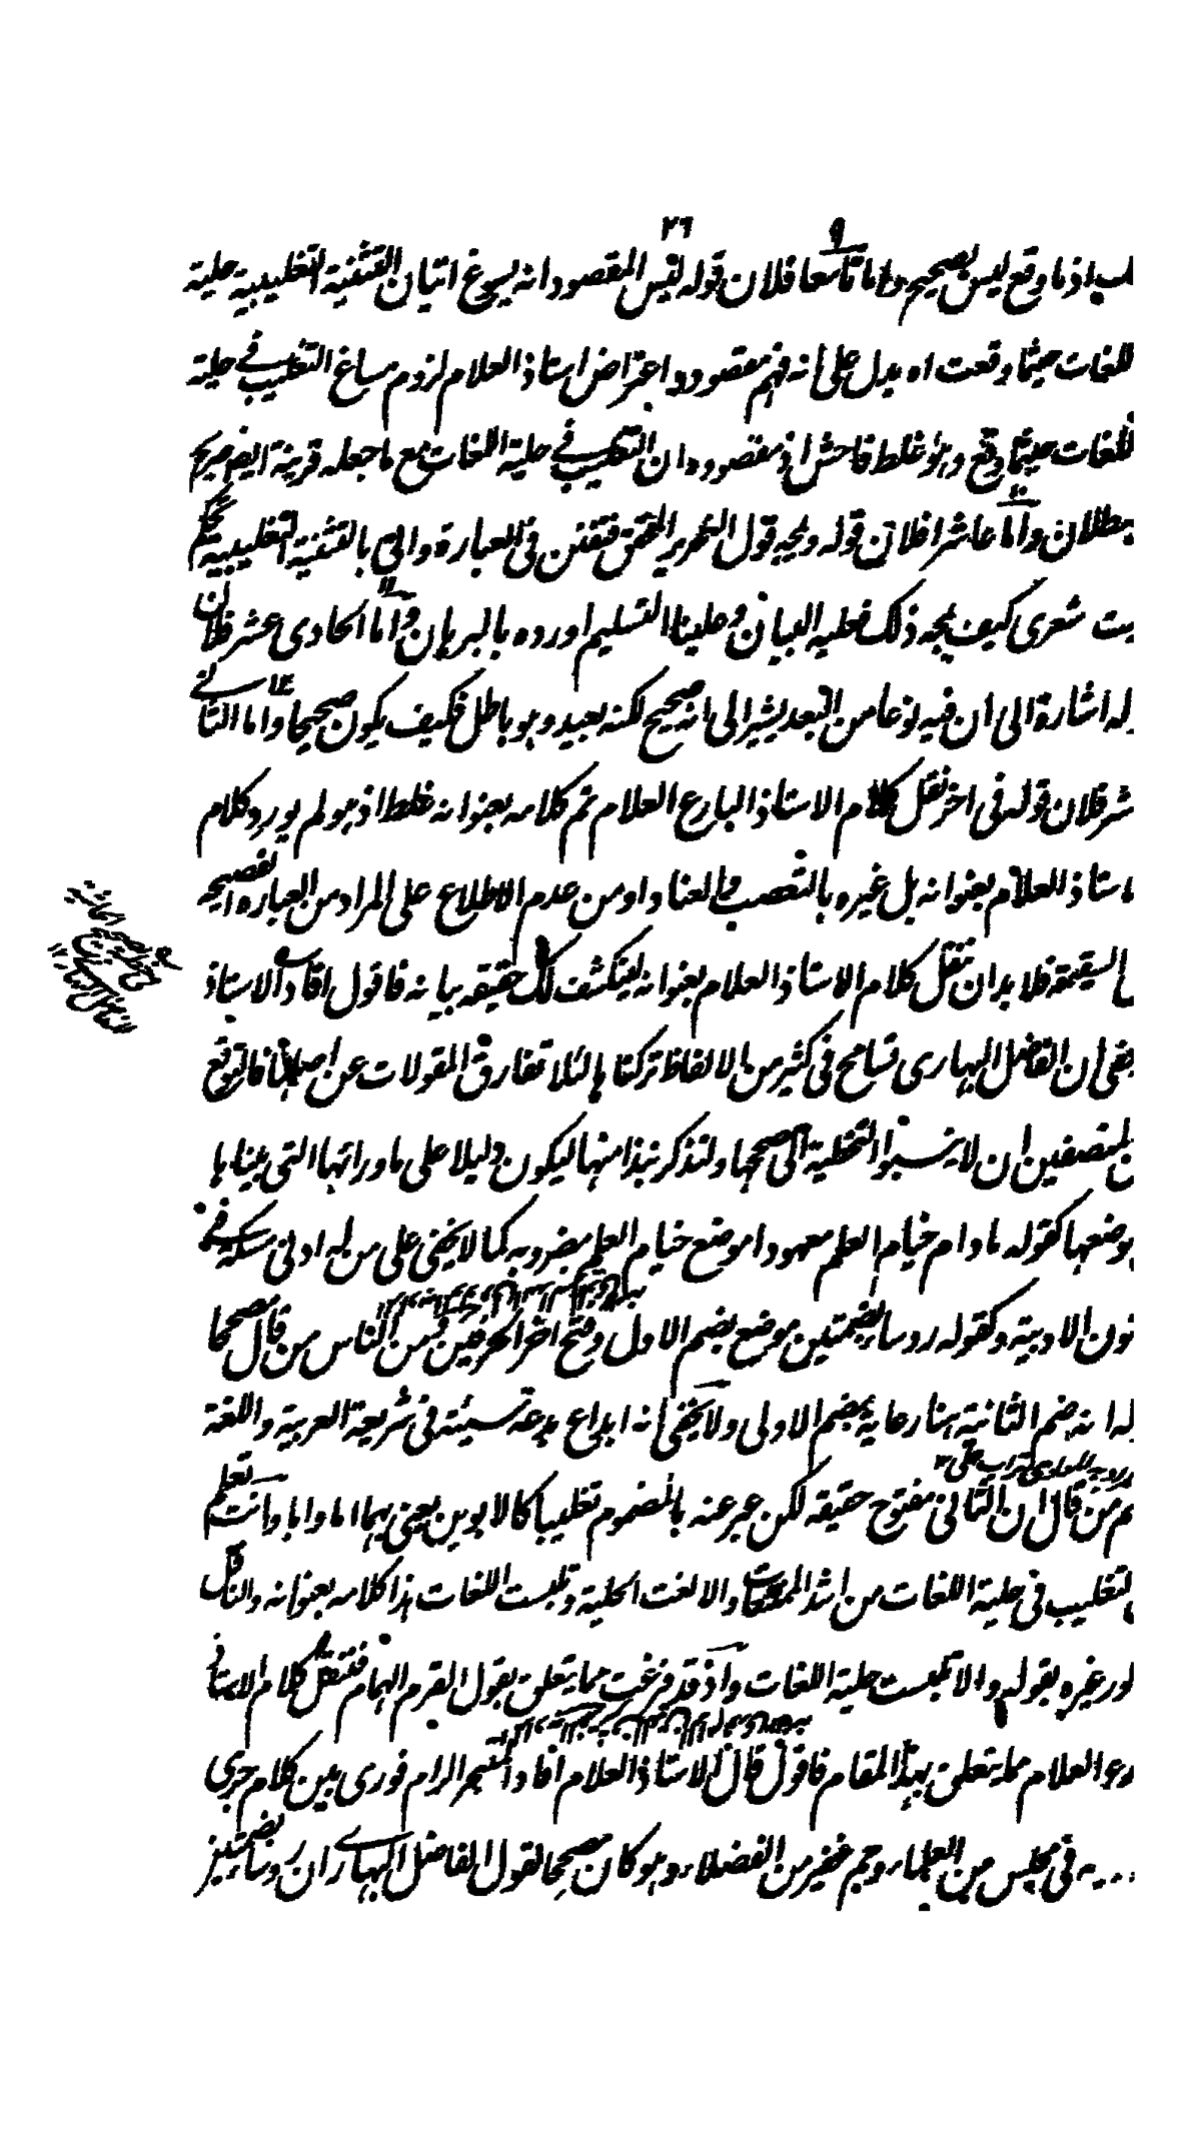 ٢٦
٩
اذ ما وقع ليس بصحيح واما تاسعا فلان قوله ليس المقصود انه يسوغ اتيان التثنية التغليبية حلية
اللغات حيثما وقعت اه يدل على انه فهم مقصود واعتراض استاذ العلام لزوم مساغ التغليب فى حلية
اللغات حيثما وقع وهو غلط فاحش اذ مقصوده ان التغليب فى حلية اللغات مع ما جعله قرينة ايضا صريح
البطلان واما عاشرا فلان قوله ويجيه قول النحرير المحقق فتفنن فى العبارة واتى بالتثنية التغليبية تحكم
ليت شعرى كيف يجيه ذلك فعليه البيان وعلينا التسليم اورده بالبرهان واما الحادى عشر فلان
له اشارة الى ان فيه نوعا من البعد يشير الى انه صحيح لكنه بعيد وهو باطل فكيف يكون صحيحا واما الثانى
عشر فلان قوله فى اخر نقل كلام الاستاذ البارع العلام تم كلامه بعنوانه غلط اذ هو لم يورد كلام
الاستاذ العلام بعنوانه بل غيره بالتعصب والعناد او من عدم الاطلاع على المراد من العبارة الفصيحة
السقيمة فلا بد ان ننقل كلام الاستاذ العلام بعنوانه لينكشف لك حقيقه بيانه فاقول افاد الاستاذ
بقى ان الفاضل البهارى تسامح فى كثير من الالفاظ تركناها لئلا تفارق المقولات عن اصلها فالتوقع
من المنصفين ان لا ينسبوا التخطية الى مصححها ولنذكر نبذا منها ليكون دليلا على ما ورائها التى بيناها
موضعها كقوله مادام خيام العلم معهودا موضع خيام العلم مضروبه كما لا يخفى على من له ادنى مسكة فى
فنون الادبية وكقوله روسا بضمتين موضع بضم الاول وفتح اخر الحرفين ومن الناس من قال مصححا
له انه ضم الثانية هنا رعاية بضم الاولى ولا يخفى انه ابداع بدعة سيئة فى شريعة العربية واللغة
ثم من قال ان الثانى مفتوح حقيقه لكن عبر عنه بالمضموم تغليبا كالابوين يعنى بهما اما وابا وانت تعلم
ان التغليب فى حلية اللغات من اشد الممتنعات والا لغت الحلية وتلبست اللغات هذا كلامه بعنوانه والناقل
غيره بقوله والا تلبست حلية اللغات واذ قد فرغت مما يتعلق بقول القرم الهمام فننقل كلام الاستاذ
العلام مما يتعلق بهذا المقام فاقول قال الاستاذ العلام افاد المتبحر الرام فورى بين كلام جرى
فى مجلس من العلماء وجم غفير من الفضلاء وهو كان مصححا لقول الفاضل البهارى ان روسا بضمتين